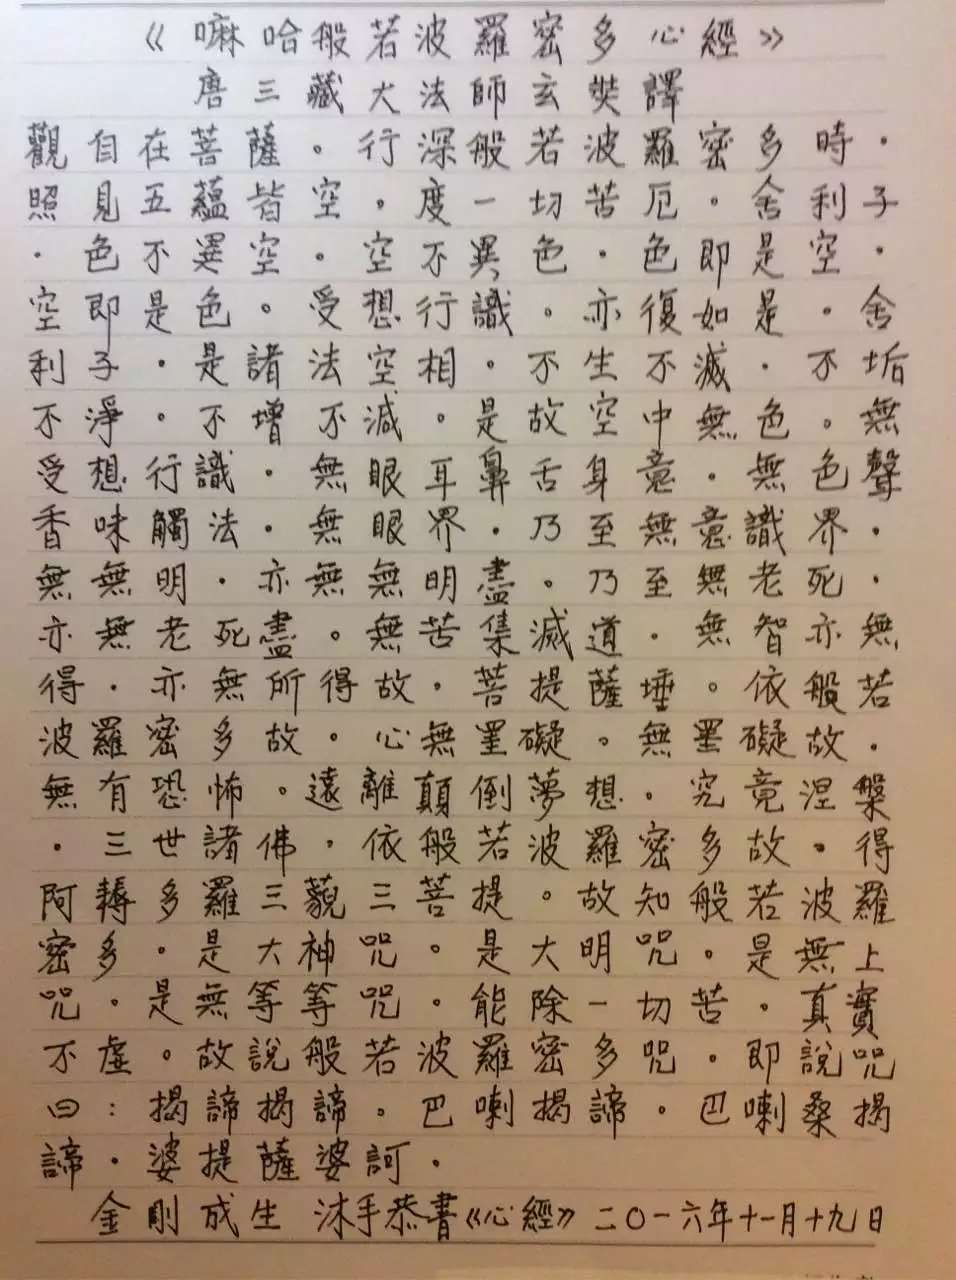 《嘛哈般若波羅密多心經》
唐三藏大法師玄奘譯
觀自在菩薩。行深般若波羅密多時。
照見五蘊皆空。度一切苦厄。舍利子
。色不異空。空不異色。色即是空。
空即是色。受想行識。亦復如是。舍
利子。是諸法空相。不生不滅。不垢
不淨。不增不減。是故空中無色。無
受想行識。無眼耳鼻舌身意。無色聲
香味觸法。無眼界。乃至無意識界。
無無明。亦無無明盡。乃至無老死。
亦無老死盡。無苦集滅道。無智亦無
得。亦無所得故。菩提薩埵。依般若
波羅密多故。心無罣礙。無罣礙故。
無有恐怖。遠離顛倒夢想。究竟涅槃
。三世諸佛。依般若波羅密多故。得
阿耨多羅三藐三菩提。故知般若波羅
密多。是大神咒。是大明咒。是無上
咒。是無等等咒。能除一切苦。真實
不虛。故說般若波羅密多咒。即說咒
曰：揭諦揭諦。巴喇揭諦。巴喇桑揭
諦。婆提薩婆訶。
金剛成生 沐手恭書《心經》二〇一六年十一月十九日